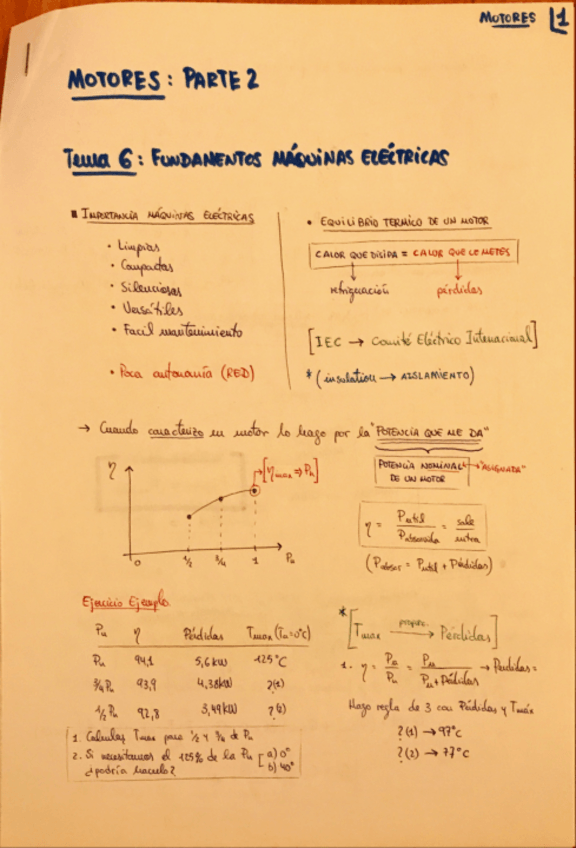 MOTORES 1
MOTORES: PARTE 2
Tema 6: FUNDAMENTOS MÁQUINAS ELÉCTRICAS
■ IMPORTANCIA MÁQUINAS ELÉCTRICAS
• Limpias
• Compactas
• Silenciosas
• Versátiles
• Facil mantenimiento
• Poca autonomía (RED)
• EQUILIBRIO TERMICO DE UN MOTOR
CALOR QUE DISIPA = CALOR QUE LE METES
refrigeración pérdidas
[IEC → Comité Eléctrico Internacional]
* (insulation → AISLAMIENTO)
→ Cuando caracterizo un motor lo hago por la "POTENCIA QUE ME DA"
POTENCIA NOMINAL → "ASIGNADA"
DE UN MOTOR
η
[ηmax ⇒ Pn]
0 1/2 3/4 1 Pn
η = Pútil / Pabsorbida = sale / entra
(Pabsor = Pútil + Pérdidas)
Ejercicio Ejemplo
Pn η Pérdidas Tmax (Ta=0°C)
Pn 94,1 5,6 kW 125°C
3/4 Pn 93,9 4,38 kW ?(1)
1/2 Pn 92,8 3,49 kW ?(2)
1. Calcular Tmax para 1/2 y 3/4 de Pn
2. Si necesitamos el 125% de la Pn [ a) 0°
¿podría hacerlo? b) 40°
* [Tmax → Pérdidas]
1. η = = Pn / Pn + Pérdidas → Perdidas =
Hago regla de 3 con Pérdidas y Tmáx
?(1) → 97°C
?(2) → 77°C